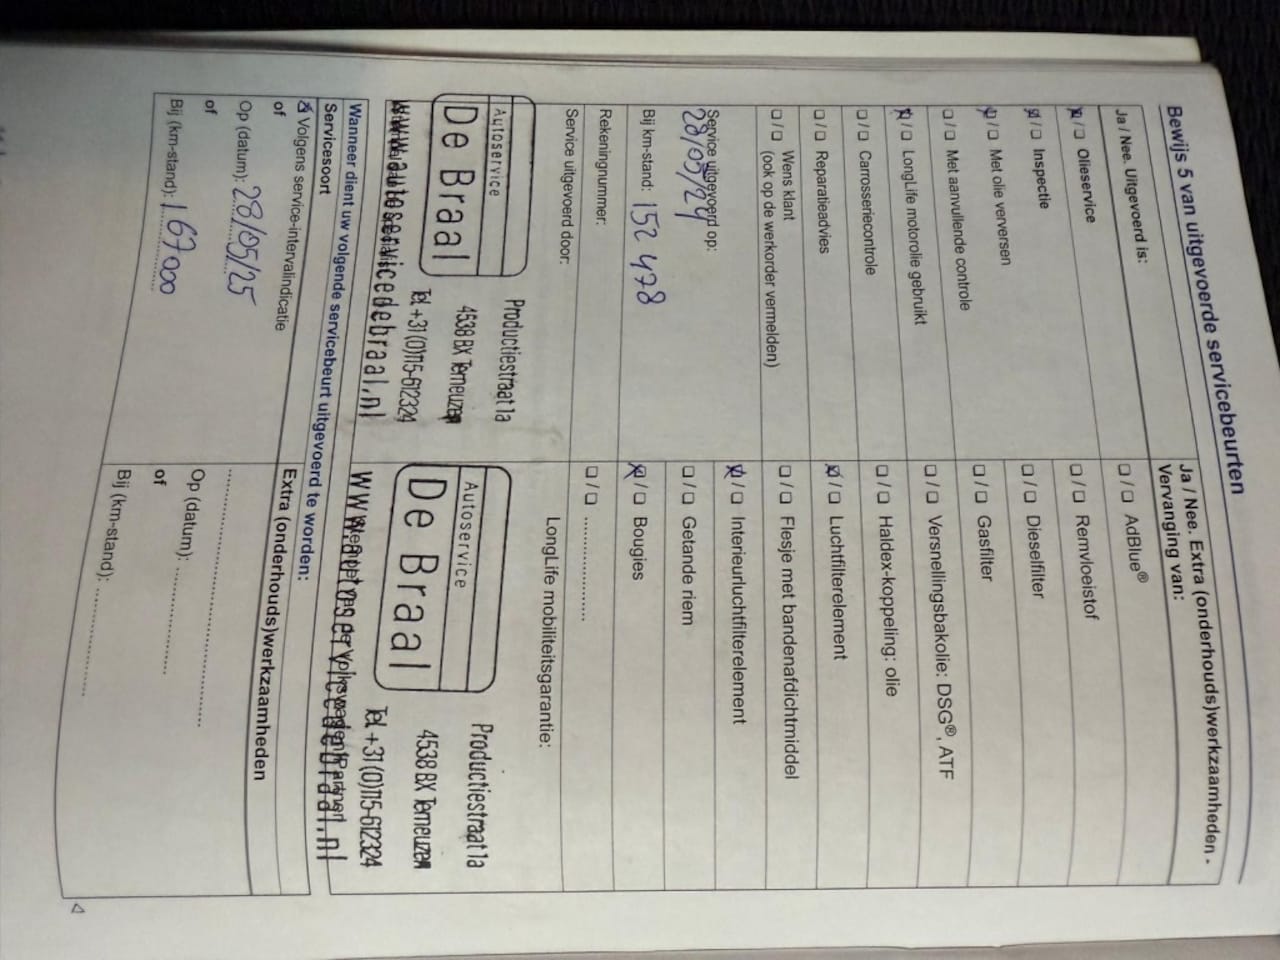 Bewijs 5 van uitgevoerde servicebeurten
Ja / Nee. Uitgevoerd is:
☒/☐ Olieservice
☒/☐ Inspectie
☒/☐ Met olie verversen
☐/☐ Met aanvullende controle
☒/☐ LongLife motorolie gebruikt
☐/☐ Carrosseriecontrole
☐/☐ Reparatieadvies
☐/☐ Wens klant
(ook op de werkorder vermelden)
Service uitgevoerd op:
28/05/24
Bij km-stand: 152 478
Rekeningnummer:
Service uitgevoerd door:
Autoservice
De Braal
Productiestraat 1a
4538 BX Terneuzen
Tel. +31 (0)115-612324
www.autoservicedebraal.nl
Ja / Nee. Extra (onderhouds)werkzaamheden -
Vervanging van:
☐/☐ AdBlue®
☐/☐ Remvloeistof
☐/☐ Dieselfilter
☐/☐ Gasfilter
☐/☐ Versnellingsbakolie: DSG®, ATF
☐/☐ Haldex-koppeling: olie
☒/☐ Luchtfilterelement
☐/☐ Flesje met bandenafdichtmiddel
☒/☐ Interieurluchtfilterelement
☐/☐ Getande riem
☒/☐ Bougies
☐/☐ ....................
LongLife mobiliteitsgarantie:
Autoservice
De Braal
Productiestraat 1a
4538 BX Terneuzen
Tel. +31 (0)115-612324
www.autoservicedebraal.nl
Wanneer dient uw volgende servicebeurt uitgevoerd te worden:
Servicesoort
☒ Volgens service-intervalindicatie
of
Op (datum): 28/05/25
of
Bij (km-stand): 167000
Extra (onderhouds)werkzaamheden
........................................
Op (datum): ....................
of
Bij (km-stand): ....................